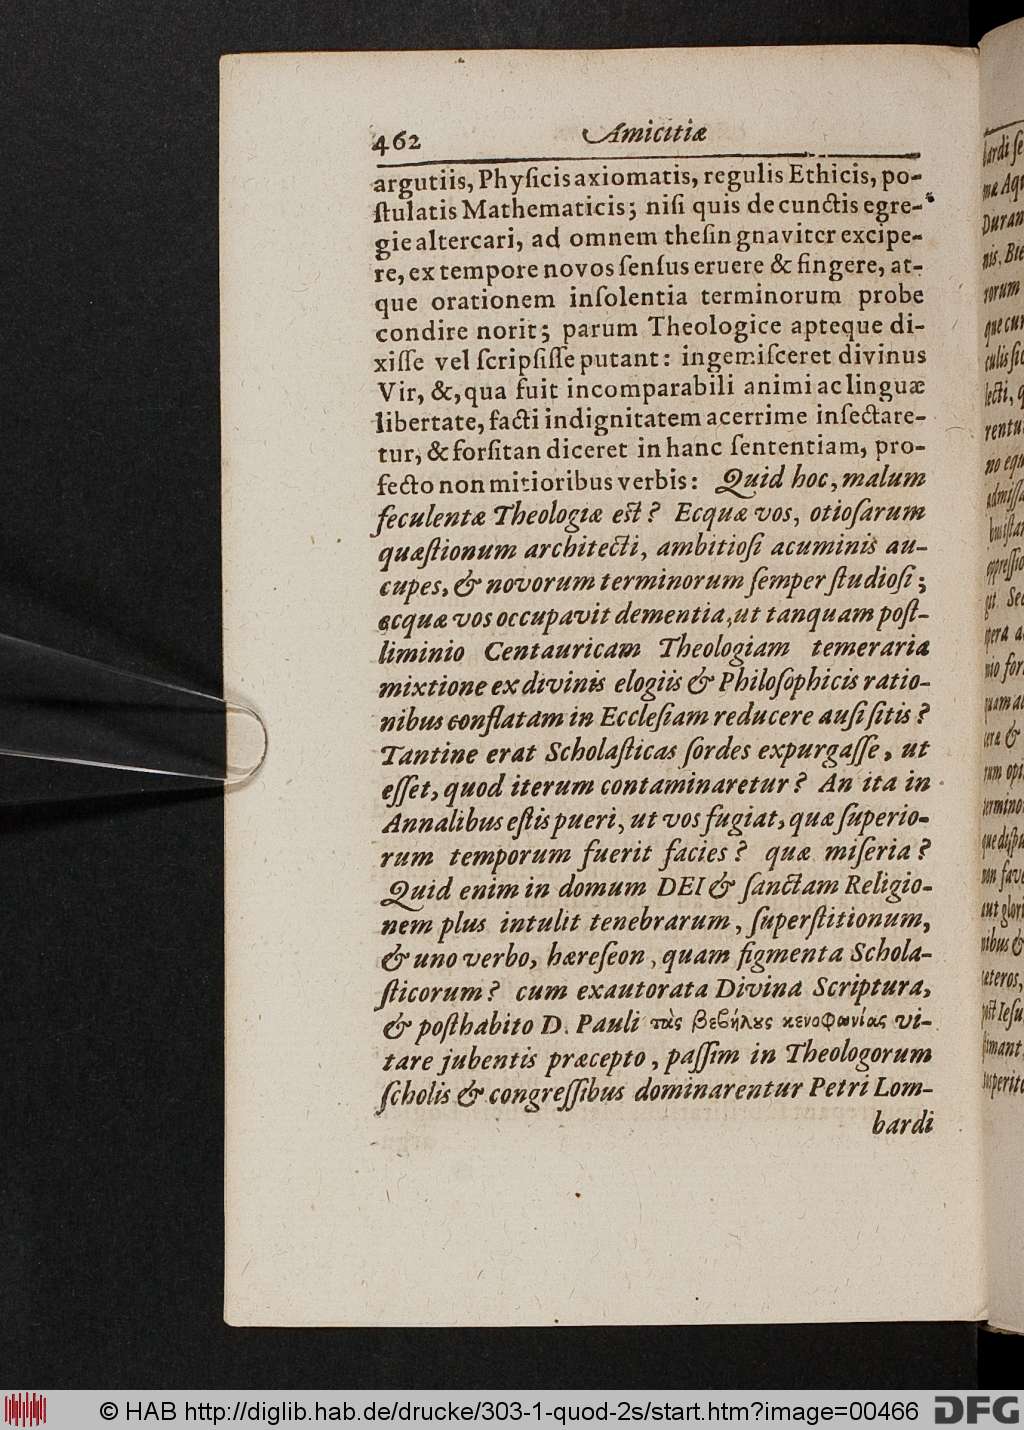 462 Amicitiæ
argutiis, Phyſicis axiomatis, regulis Ethicis, po-
ſtulatis Mathematicis; niſi quis de cunctis egre-
gie altercari, ad omnem theſin gnaviter excipe-
re, ex tempore novos ſenſus eruere & fingere, at-
que orationem inſolentia terminorum probe
condire norit; parum Theologice apteque di-
xiſſe vel ſcripſiſſe putant: ingemiſceret divinus
Vir, &, qua fuit incomparabili animi ac linguæ
libertate, facti indignitatem acerrime inſectare-
tur, & forſitan diceret in hanc ſententiam, pro-
fecto non mitioribus verbis: Quid hoc, malum
feculentæ Theologiæ est? Ecquæ vos, otioſarum
quæſtionum architecti, ambitioſi acuminis au-
cupes, & novorum terminorum ſemper ſtudioſi;
ecquæ vos occupavit dementia, ut tanquam poſt-
liminio Centauricam Theologiam temeraria
mixtione ex divinis elogiis & Philoſophicis ratio-
nibus conflatam in Eccleſiam reducere auſi ſitis?
Tantine erat Scholaſticas ſordes expurgaſſe, ut
eſſet, quod iterum contaminaretur? An ita in
Annalibus eſtis pueri, ut vos fugiat, quæ ſuperio-
rum temporum fuerit facies? quæ miſeria?
Quid enim in domum DEI & ſanctam Religio-
nem plus intulit tenebrarum, ſuperſtitionum,
& uno verbo, hæreſeon, quam figmenta Schola-
ſticorum? cum exautorata Divina Scriptura,
& poſthabito D. Pauli τὰς βεβήλȣς κενοφωνίας vi-
tare jubentis præcepto, paſſim in Theologorum
ſcholis & congreſſibus dominarentur Petri Lom-
bardi
lardi ſe
mæ Aqu
Duran
nis, Bie
rorum
que cur
culis ſic
lecti, q
rentu
no equ
admiſſa
git. Sed
opera a
nio for
quam a
rum opt
termino
non fave
aut glori
nibus &
cæteros,
poſt Ieſu
© HAB http://diglib.hab.de/drucke/303-1-quod-2s/start.htm?image=00466 DFG